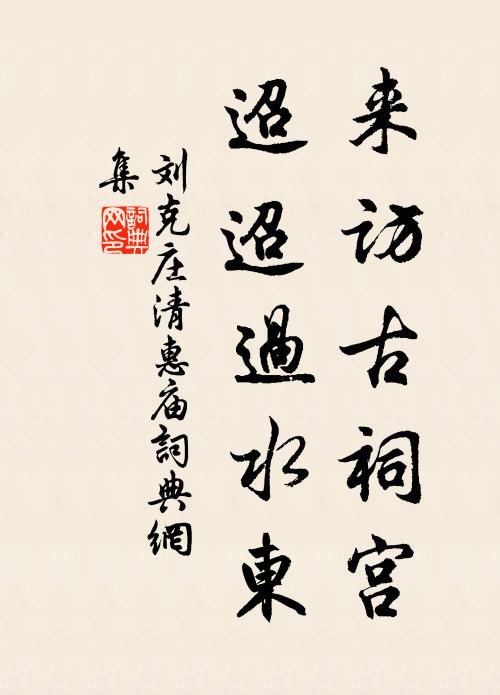 来访古祠宫
迢迢過水東
刘克庄清惠庙詞典網
集
詞典
网印